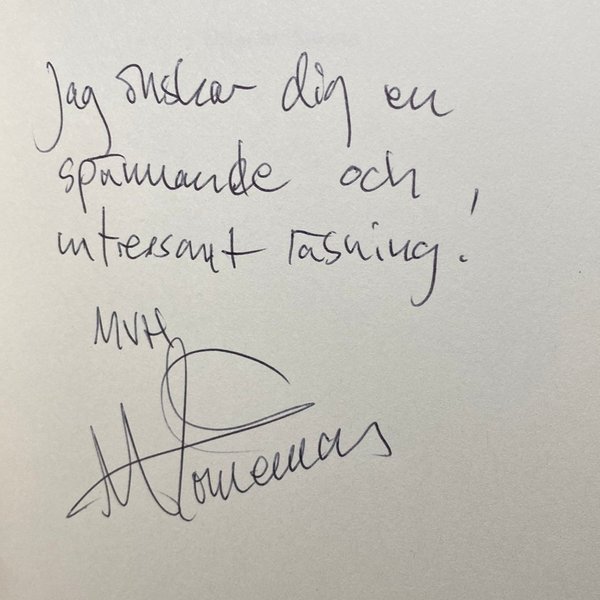 Jag önskar dig en
spännande och
intressant läsning!
MVH